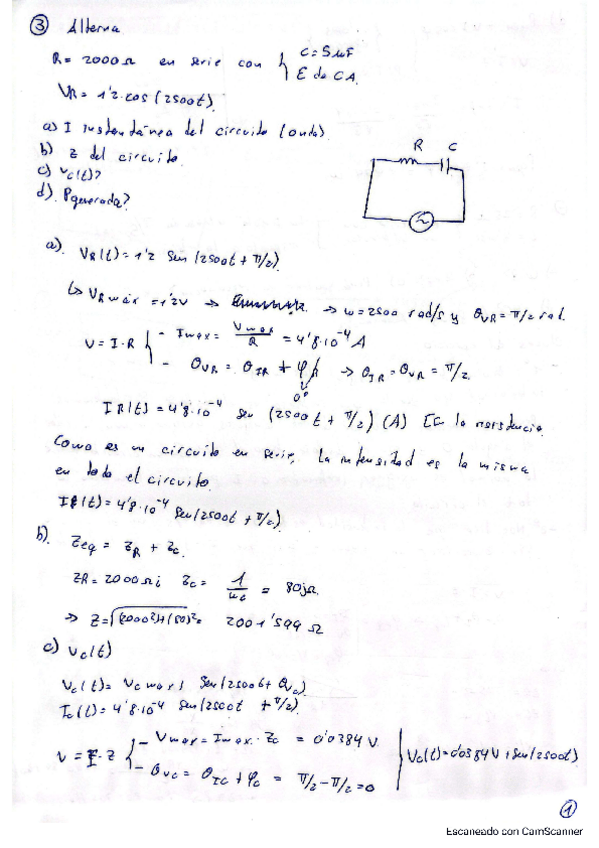 ③ Alterna
R = 2000Ω en serie con { C = 5μF
E de CA.
VR = 1'2·cos(2500t)
a) I instantánea del circuito (onda)
b) Z del circuito.
c) vc(t)?
d) Pgenerada?
R C
a). VR(t) = 1'2 sen(2500t + π/2)
↳ VR max = 1'2V → → ω = 2500 rad/s y θVR = π/2 rad.
V = I·R { - Imax = Vmax/R = 4'8·10⁻⁴ A
- θVR = θIR + φR → θIR = θVR = π/2.
0º
IR(t) = 4'8·10⁻⁴ sen (2500t + π/2) (A) En la resistencia.
Como es un circuito en serie, la intensidad es la misma
en todo el circuito
IR(t) = 4'8·10⁻⁴ sen(2500t + π/2).
b). Zeq = ZR + Zc.
ZR = 2000Ω; Zc = 1/ωc = 80jΩ.
→ Z = √(2000²)+(80)² = 2001'599 Ω
c) Vc(t)
Vc(t) = Vcmax · sen(2500t + θVc)
Ic(t) = 4'8·10⁻⁴ sen(2500t + π/2).
V = I·Z { - Vmax = Imax · Zc = 0'0384 V.
- θVC = θIC + φc = π/2 - π/2 = 0
Vc(t) = 0'0384 V · sen(2500t)
①
Escaneado con CamScanner